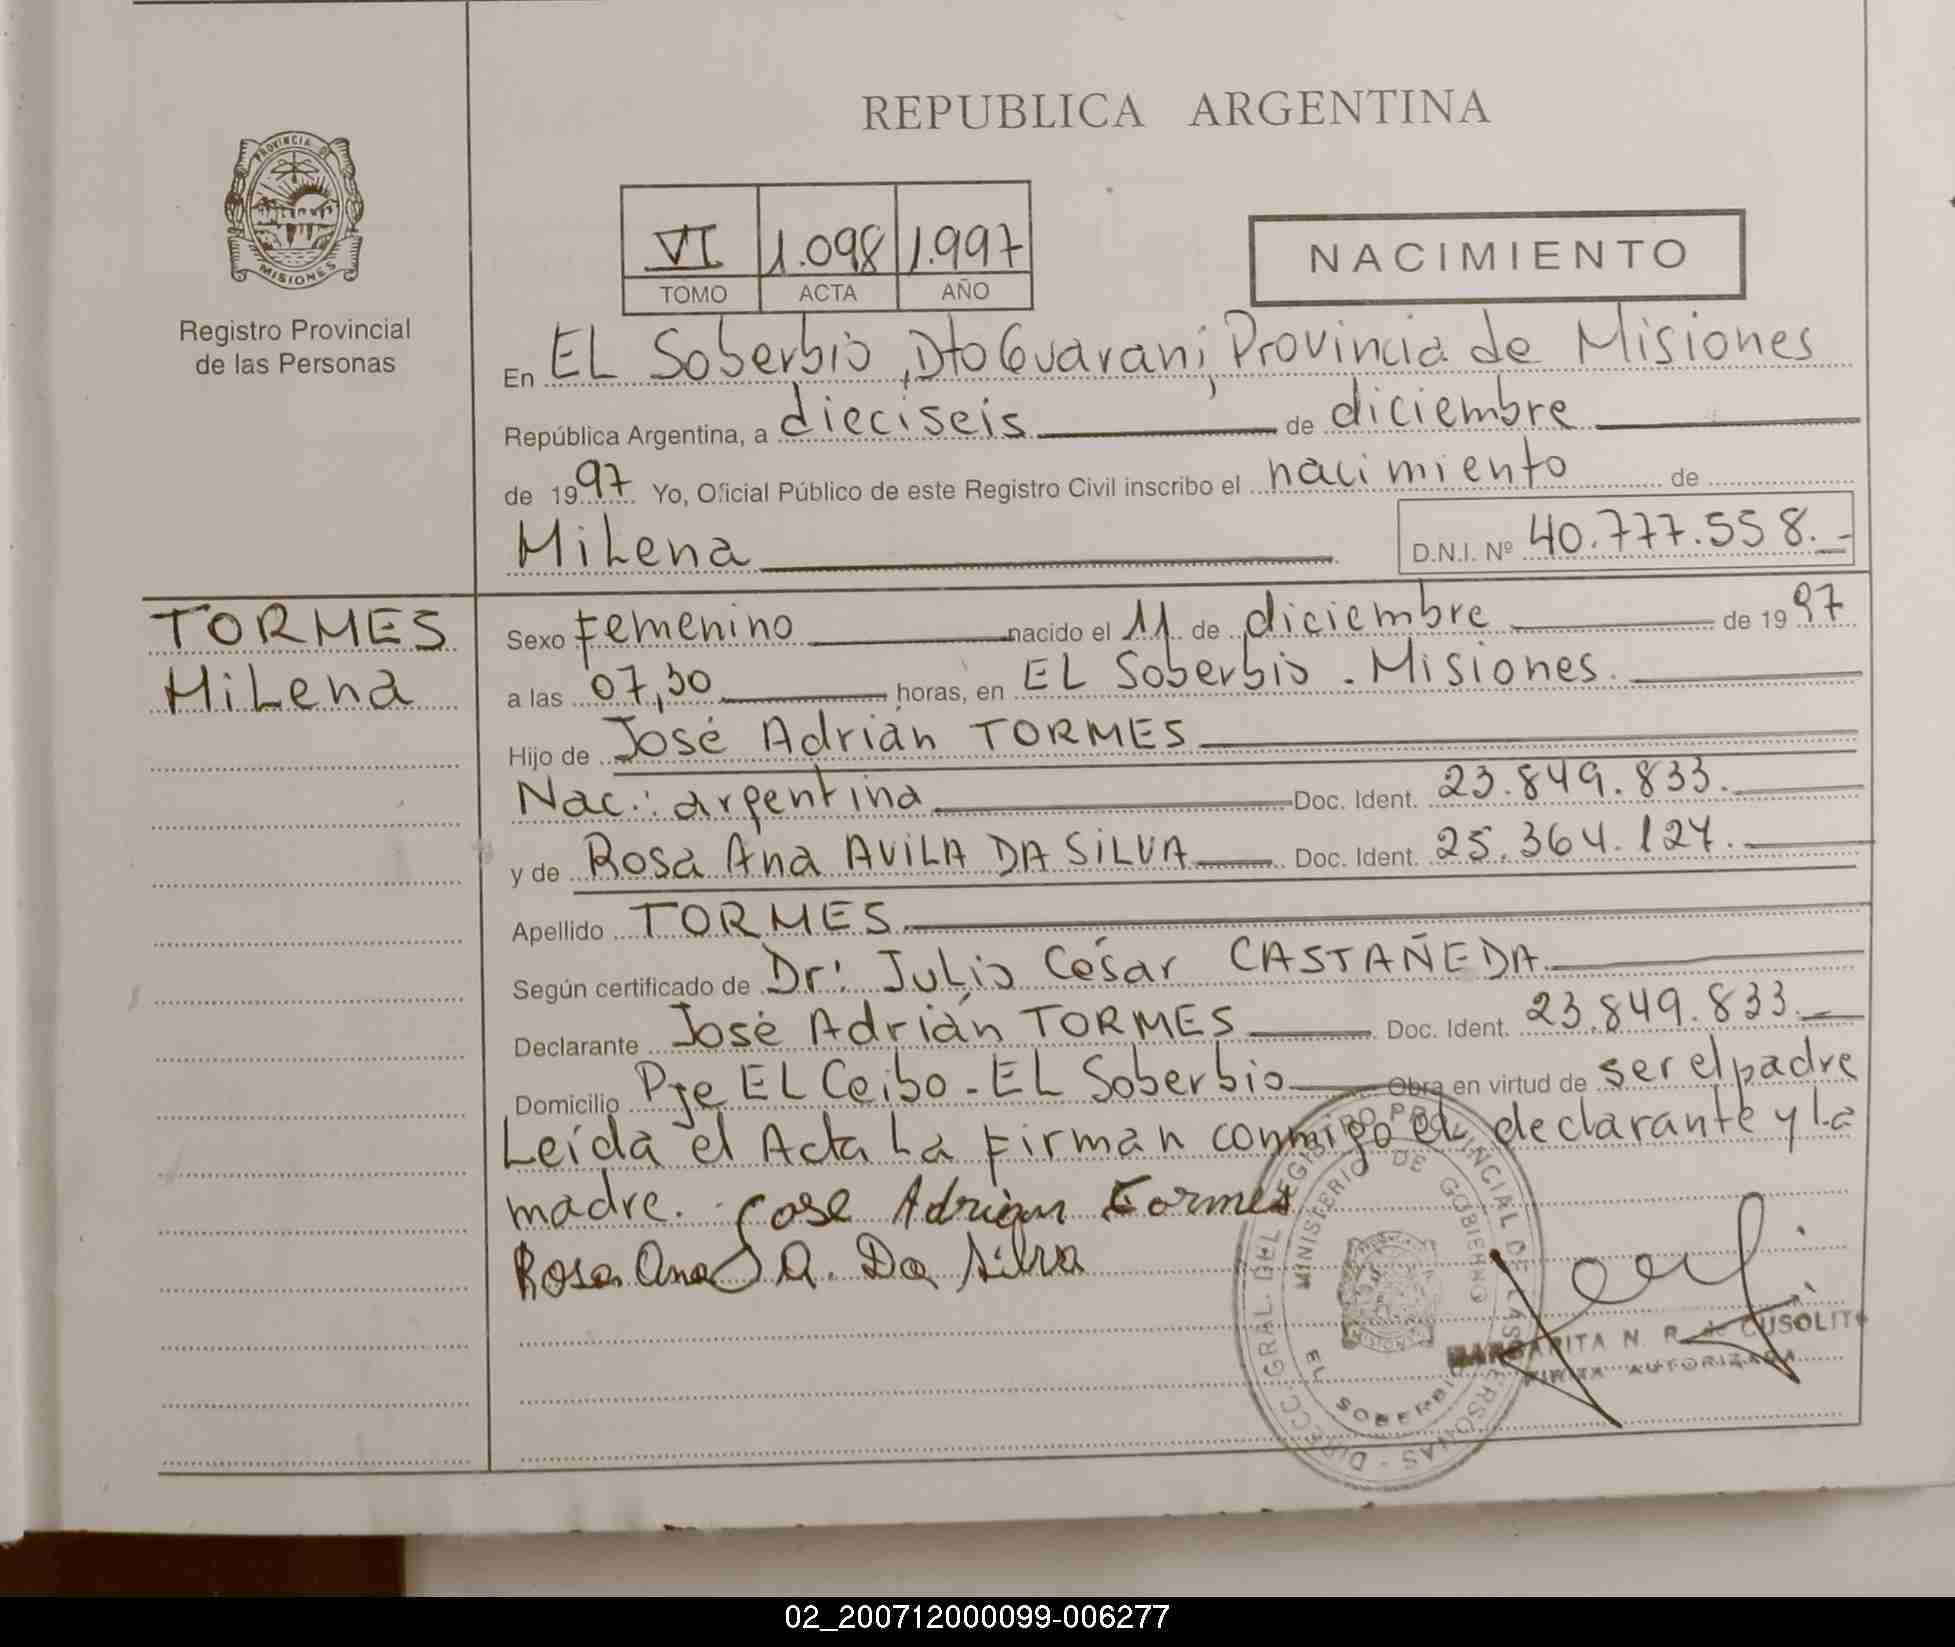 REPUBLICA ARGENTINA
PROVINCIA DE
MISIONES
Registro Provincial
de las Personas
VI 1.098 1.997
TOMO ACTA AÑO
NACIMIENTO
En EL Soberbio, Dto Guaraní, Provincia de Misiones
República Argentina, a dieciseis de diciembre
de 1997 Yo, Oficial Público de este Registro Civil inscribo el nacimiento de
Milena D.N.I. Nº 40.777.558.-
TORMES
Milena
Sexo Femenino nacido el 11 de diciembre de 1997
a las 07,30 horas, en EL Soberbio. Misiones.
Hijo de José Adrián TORMES
Nac.: argentina Doc. Ident. 23.849.833.
y de Rosa Ana AVILA DA SILVA Doc. Ident. 25.364.127.
Apellido TORMES
Según certificado de Dr: Julio César CASTAÑEDA
Declarante José Adrián TORMES Doc. Ident. 23.849.833.
Domicilio Pje EL Ceibo - EL Soberbio Obra en virtud de ser el padre
Leída el Acta la firman conmigo el declarante y la
madre. Jose Adrian Tormes
Rosa Ana A. Da Silva
DIRECC. GRAL. DEL REGISTRO PROVINCIAL DE LAS PERSONAS
MINISTERIO DE GOBIERNO
EL SOBERBIO
MARGARITA N. R. de CUSOLITO
FIRMA AUTORIZADA
02_200712000099-006277